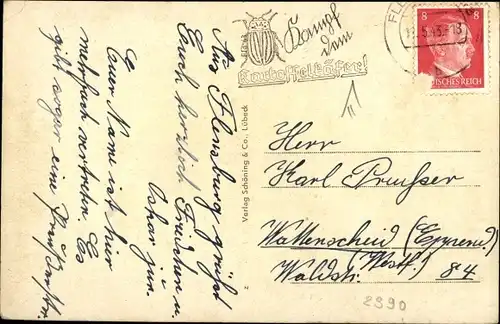 Aus Flensburg grüßt
Euch herzlich Friedchen u.
Oskar jun.
Euer Name ist hier
mehrfach vertreten. Es
gibt sogar eine
Kampf
dem
Kartoffelkäfer!
8
8
SCHES REICH
Verlag Schöning & Co., Lübeck
Herr
Karl Preußer
Wattenscheid
(Westf.)
Waldstr. 84
2
2390